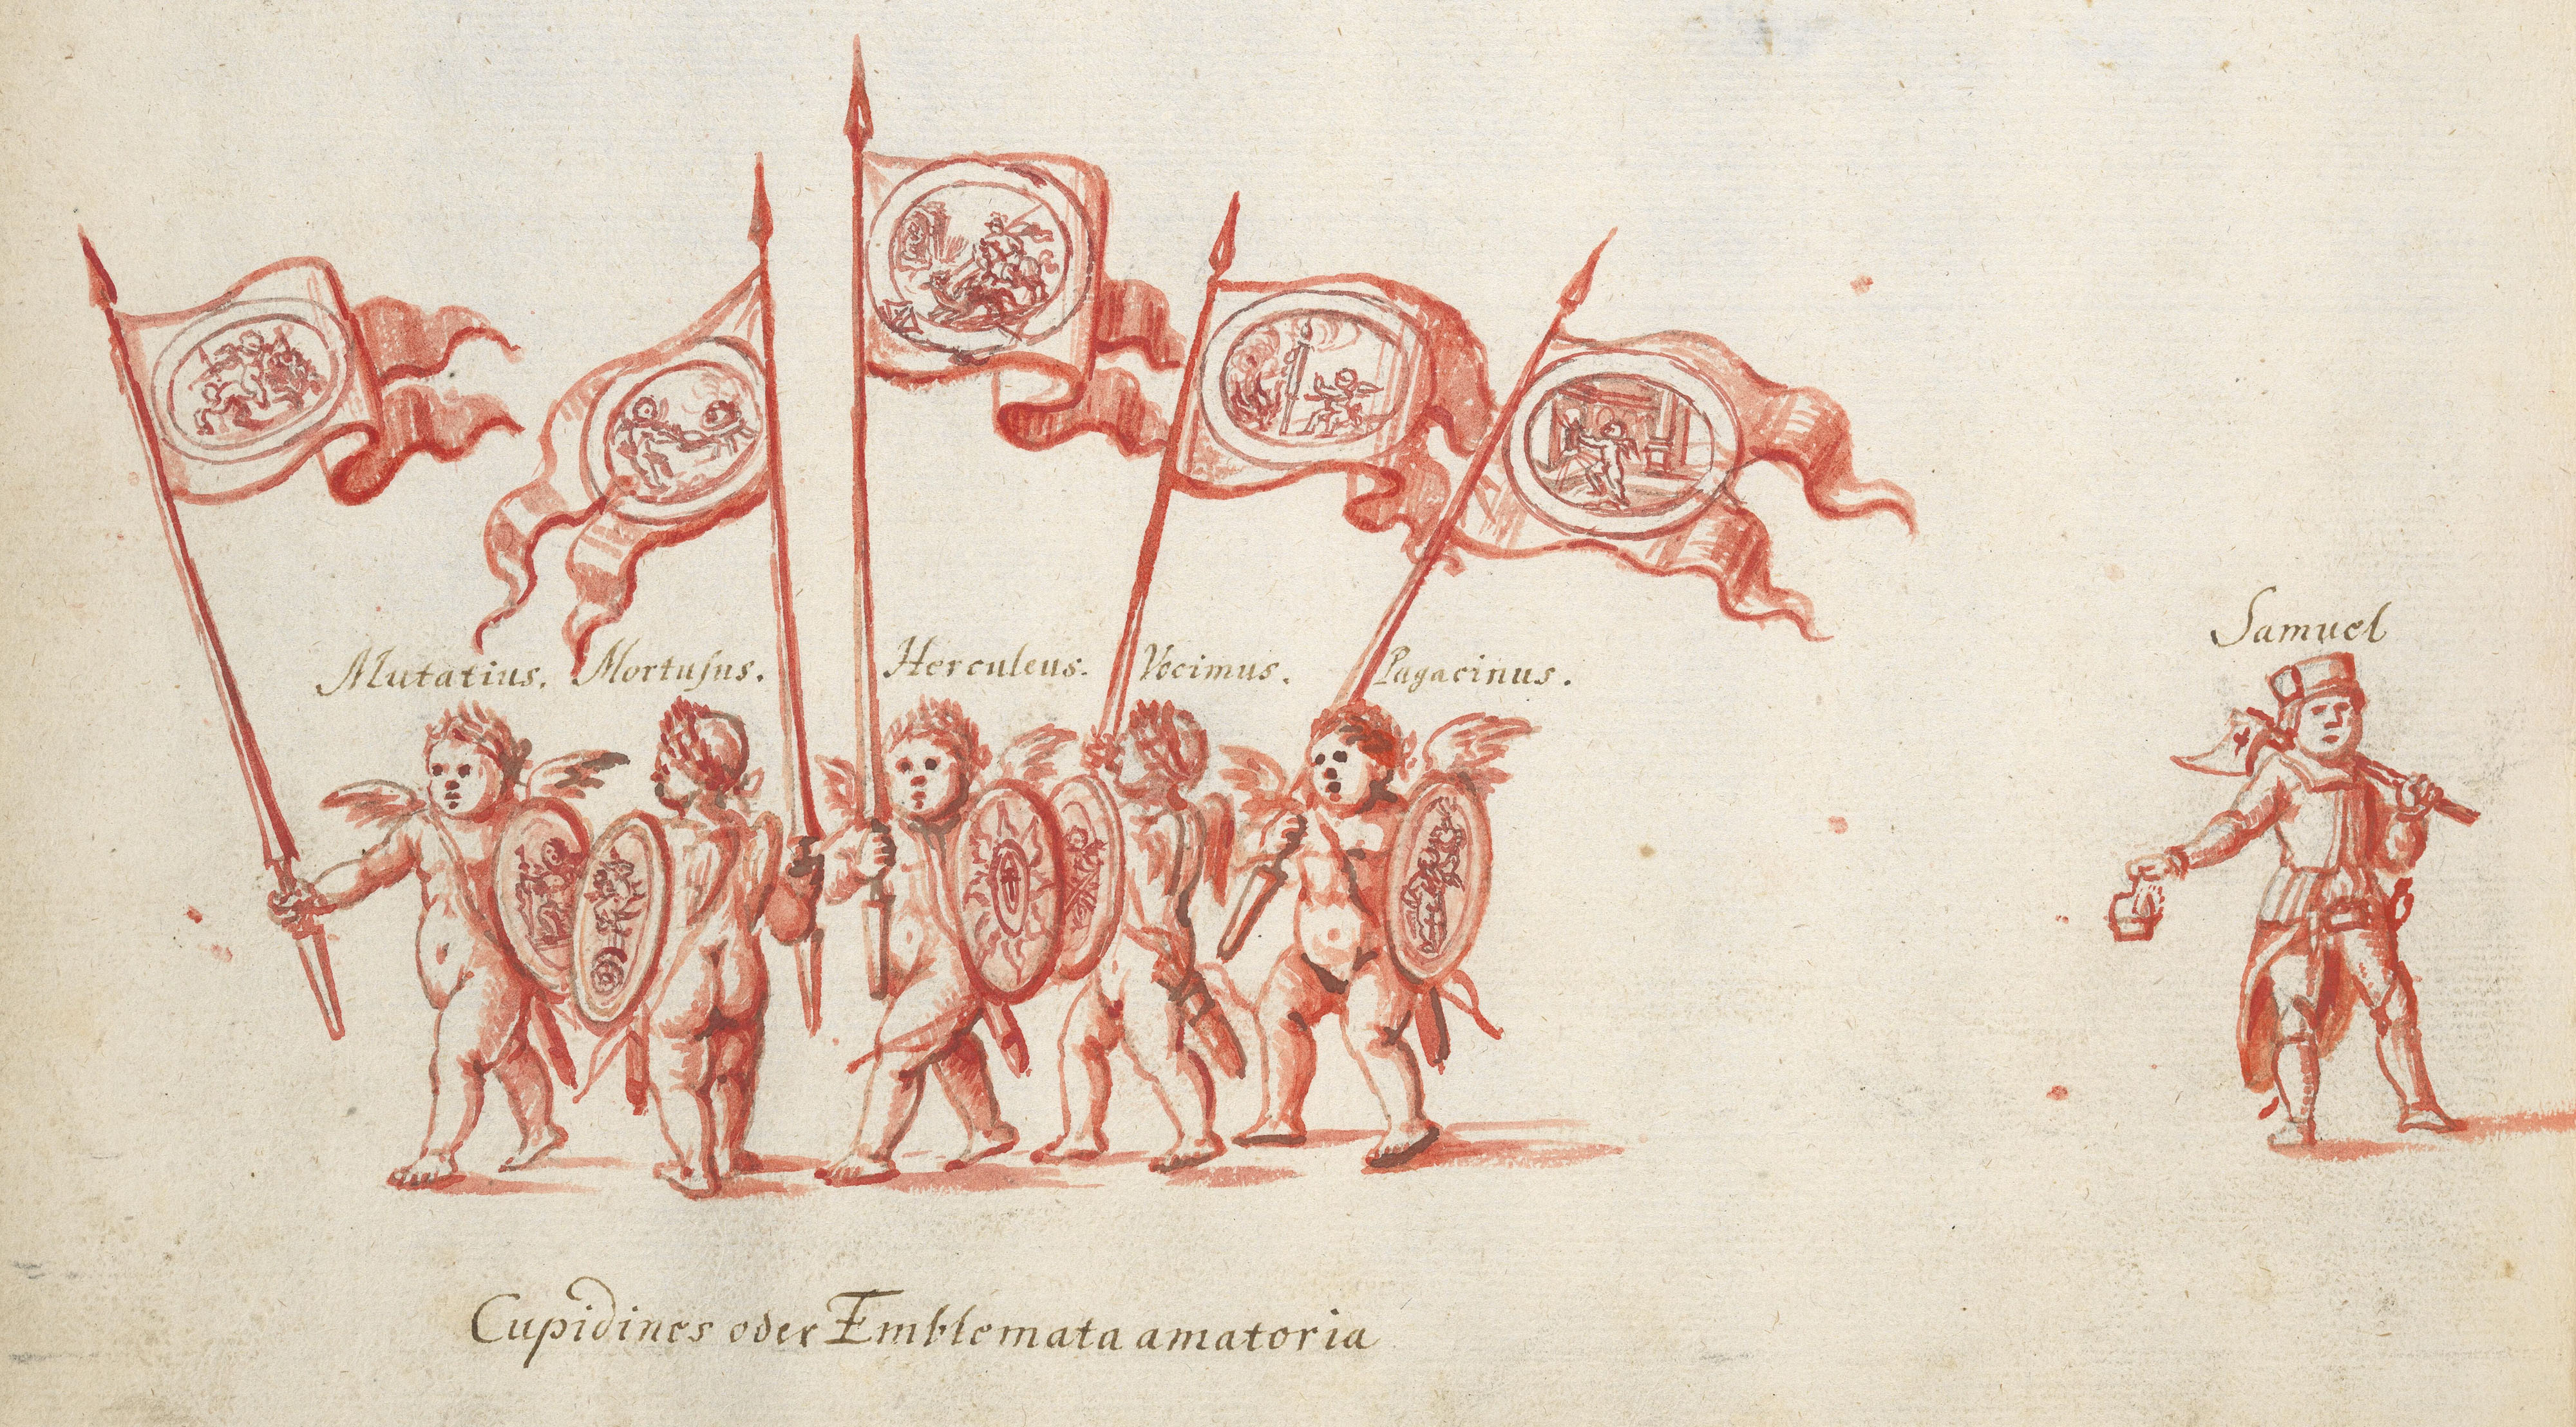 Samuel
Mutatius. Mortuſus. Herculeus. Vocimus. Pagacinus.
Cupidines oder Emblemata amatoria